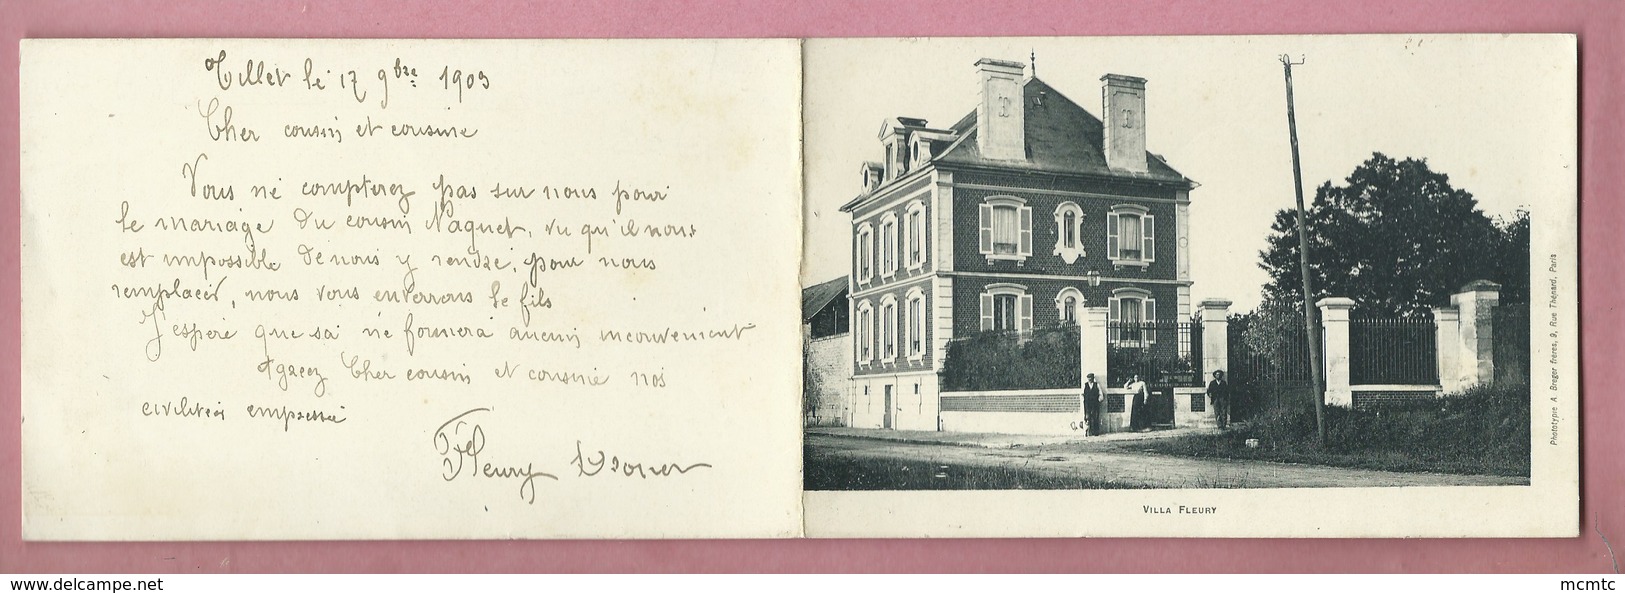 Tillet le 17 9bre 1903
Cher cousin et cousine
Vous ne compterez pas sur nous pour
le mariage du cousin Naquet, vu qu'il nous
est impossible de nous y rendre, pour nous
remplacer, nous vous enverrons le fils
J'espere que sa ne formera aucun inconvenient
Agreez Cher cousin et cousine nos
civilités empressé
Fleury
T T
VILLA FLEURY
Phototypie A. Breger frères, 9, Rue Thénard, Paris
www.delcampe.net
mcmtc